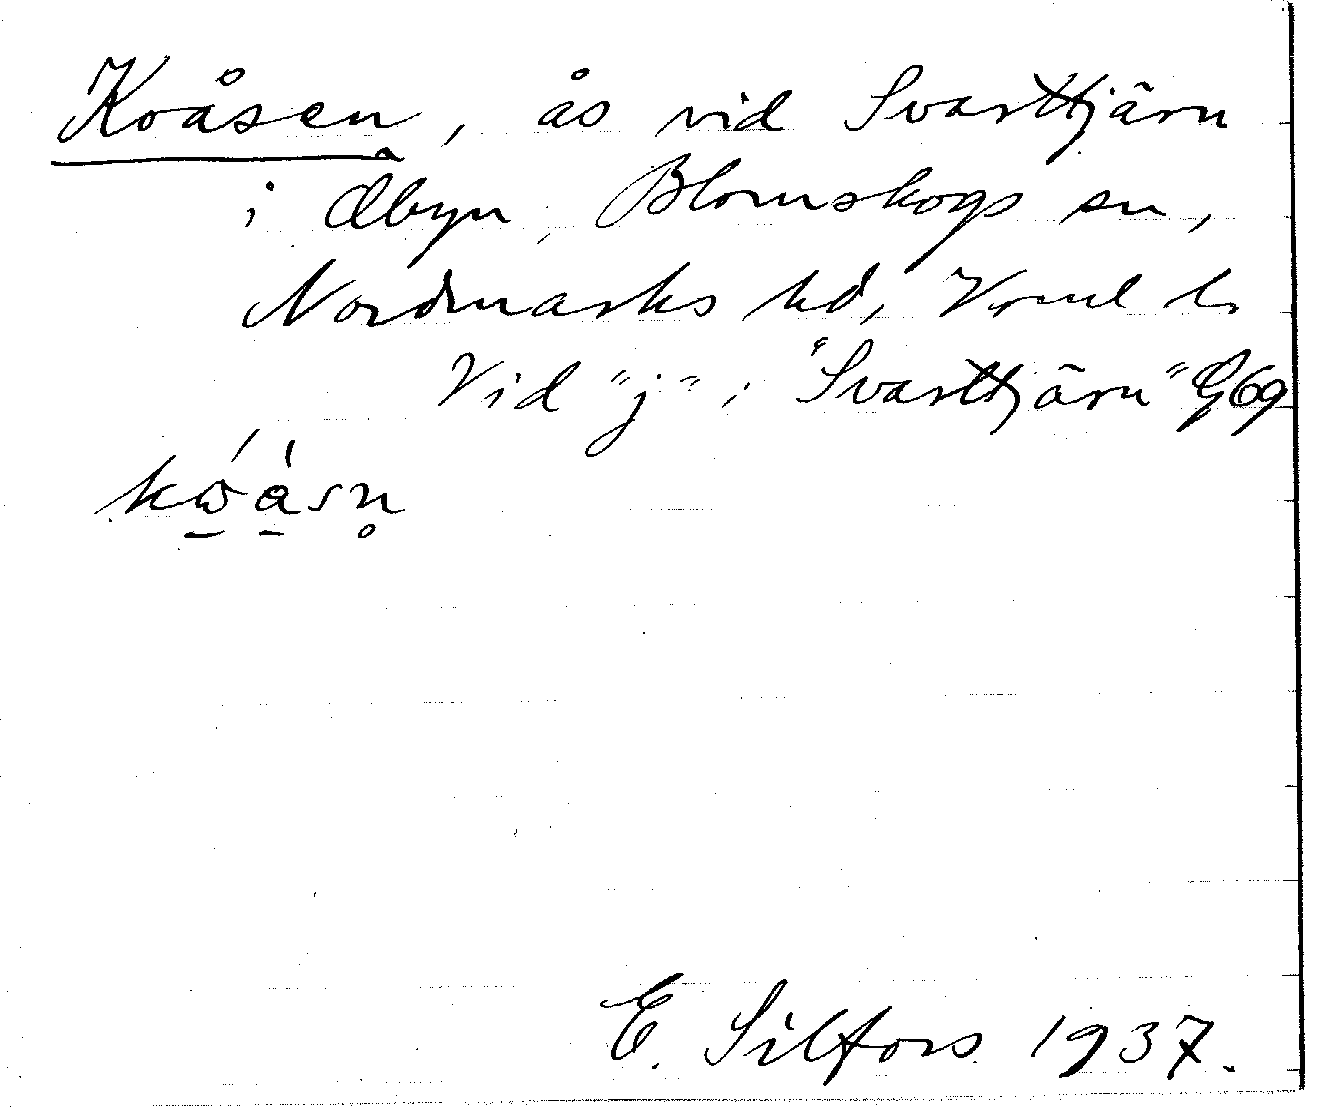 Koåsen, ås vid Svarttjärn
i Ålbyn, Blomskogs sn,
Nordmarks hd, Vrml l.
Vid "j" i "Svarttjärn" 69
E. Silfors 1937.